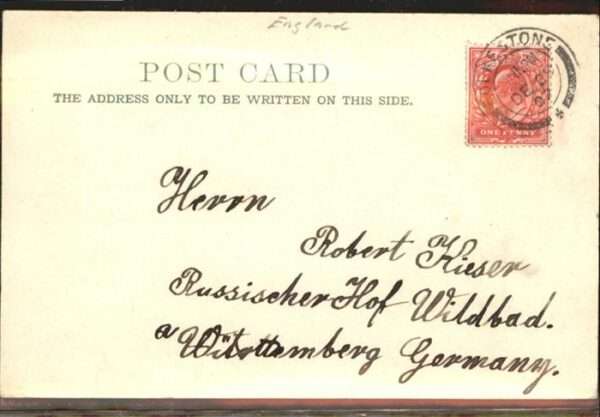 England
POST CARD
THE ADDRESS ONLY TO BE WRITTEN ON THIS SIDE.
ONE PENNY
Herrn
Robert Kieser
Russischer Hof Wildbad.
a Württemberg Germany.